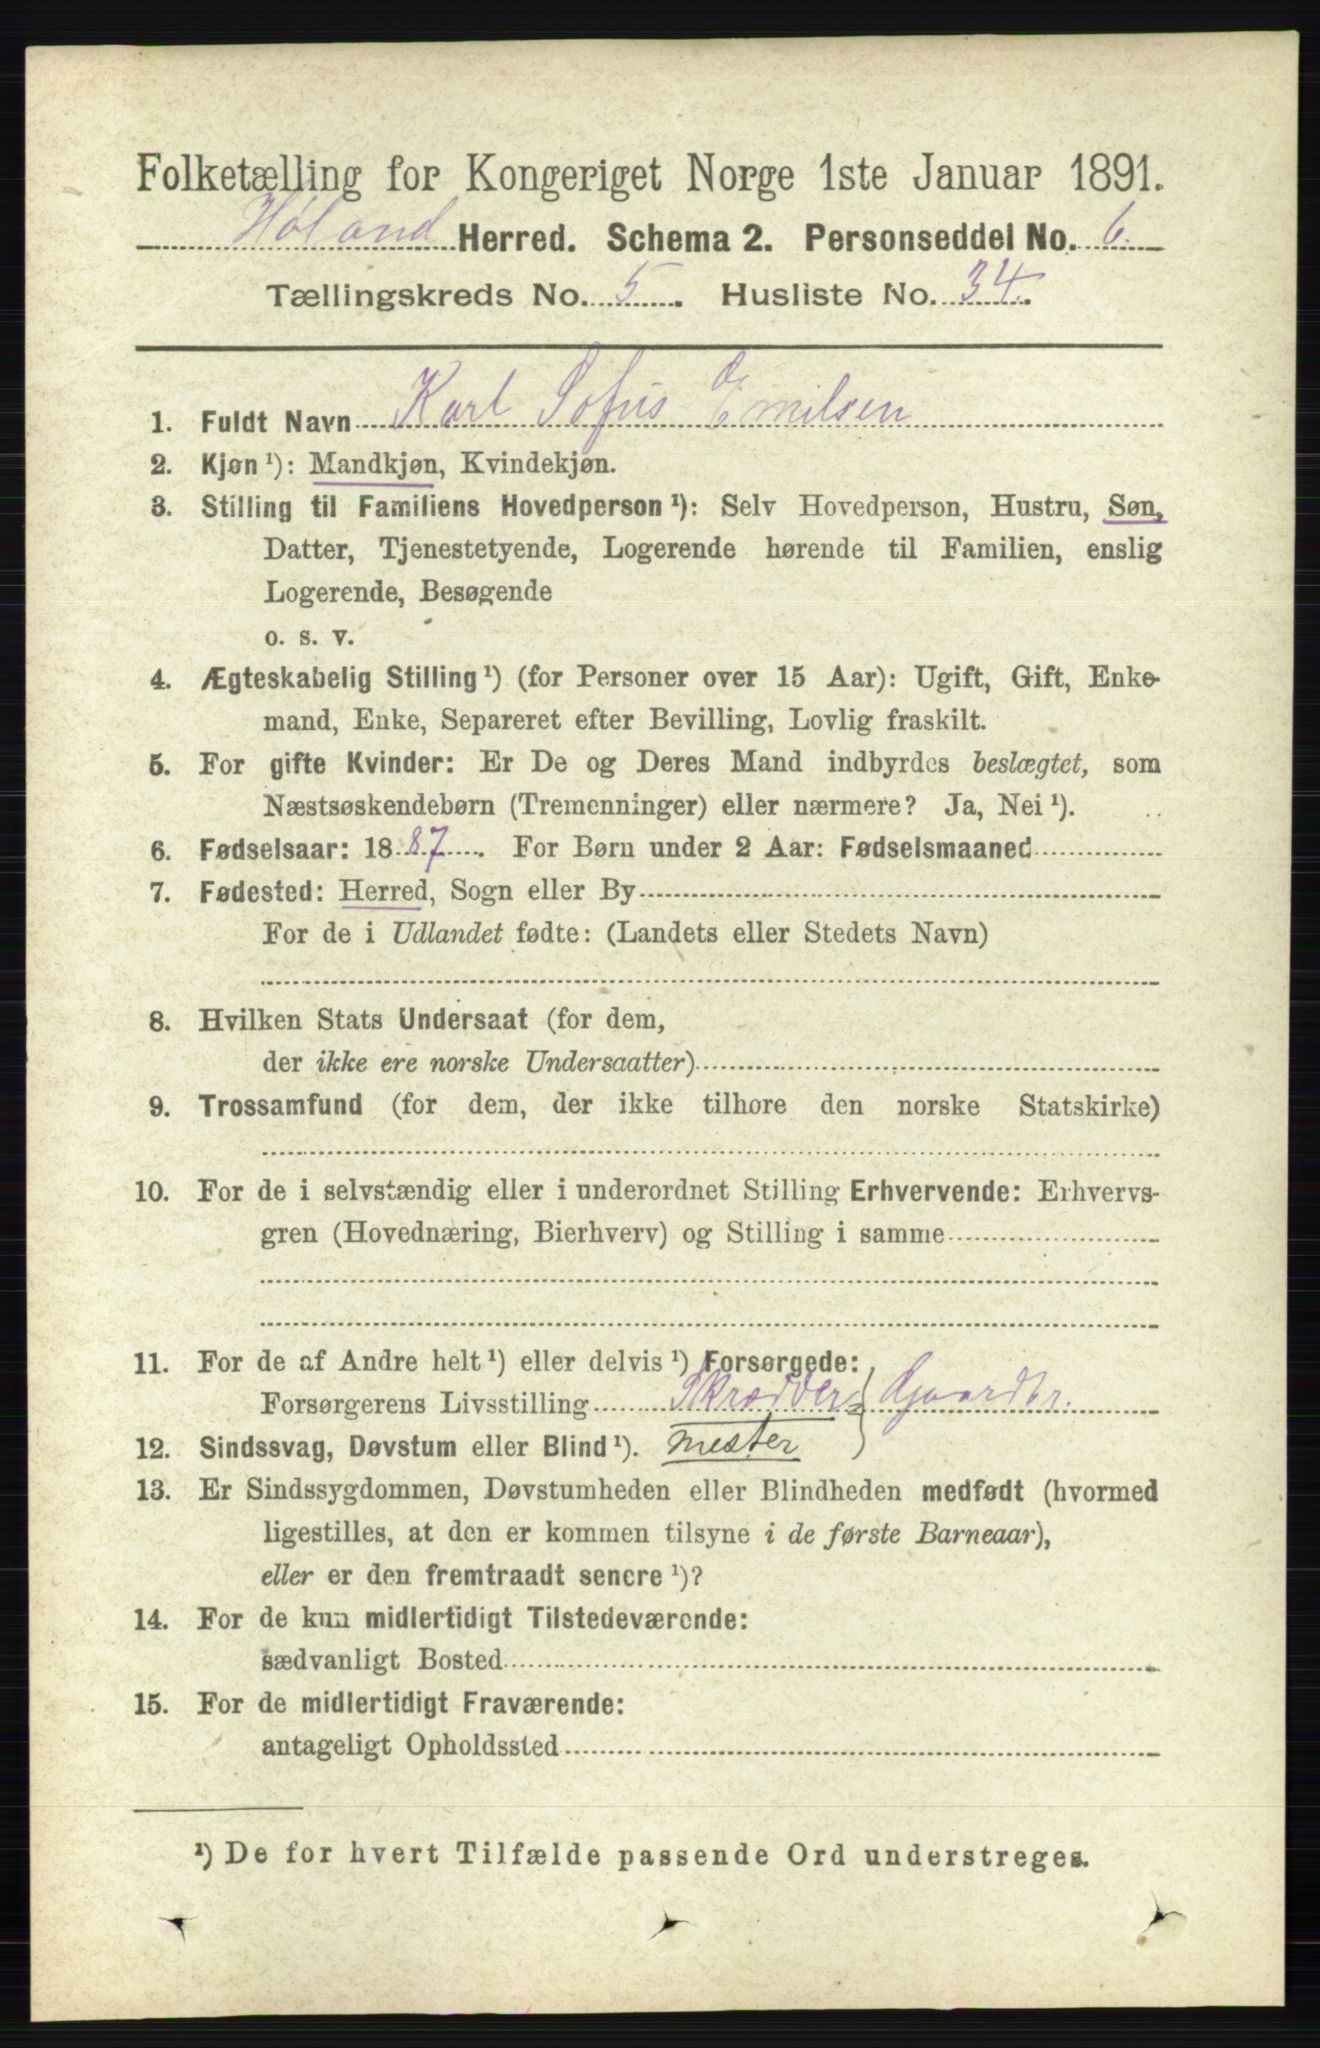 Folketælling for Kongeriget Norge 1ste Januar 1891.
Høland Herred. Schema 2. Personseddel No. 6.
Tællingskreds No. 5. Husliste No. 34.
1. Fuldt Navn Karl Sofus Emilsen
2. Kjøn¹): Mandkjøn, Kvindekjøn.
3. Stilling til Familiens Hovedperson¹): Selv Hovedperson, Hustru, Søn,
Datter, Tjenestetyende, Logerende hørende til Familien, enslig
Logerende, Besøgende
o. s. v.
4. Ægteskabelig Stilling¹) (for Personer over 15 Aar): Ugift, Gift, Enke-
mand, Enke, Separeret efter Bevilling, Lovlig fraskilt.
5. For gifte Kvinder: Er De og Deres Mand indbyrdes beslægtet, som
Næstsøskendebørn (Tremenninger) eller nærmere? Ja, Nei¹).
6. Fødselsaar: 1887. For Børn under 2 Aar: Fødselsmaaned
7. Fødested: Herred, Sogn eller By
For de i Udlandet fødte: (Landets eller Stedets Navn)
8. Hvilken Stats Undersaat (for dem,
der ikke ere norske Undersaatter)
9. Trossamfund (for dem, der ikke tilhøre den norske Statskirke)
10. For de i selvstændig eller i underordnet Stilling Erhvervende: Erhvervs-
gren (Hovednæring, Bierhverv) og Stilling i samme
11. For de af Andre helt¹) eller delvis¹) Forsørgede:
Forsørgerens Livsstilling Skrædder= } Gaardbr.
12. Sindssvag, Døvstum eller Blind¹). mester
13. Er Sindssygdommen, Døvstumheden eller Blindheden medfødt (hvormed
ligestilles, at den er kommen tilsyne i de første Barneaar),
eller er den fremtraadt senere¹)?
14. For de kun midlertidigt Tilstedeværende:
sædvanligt Bosted
15. For de midlertidigt Fraværende:
antageligt Opholdssted
¹) De for hvert Tilfælde passende Ord understreges.